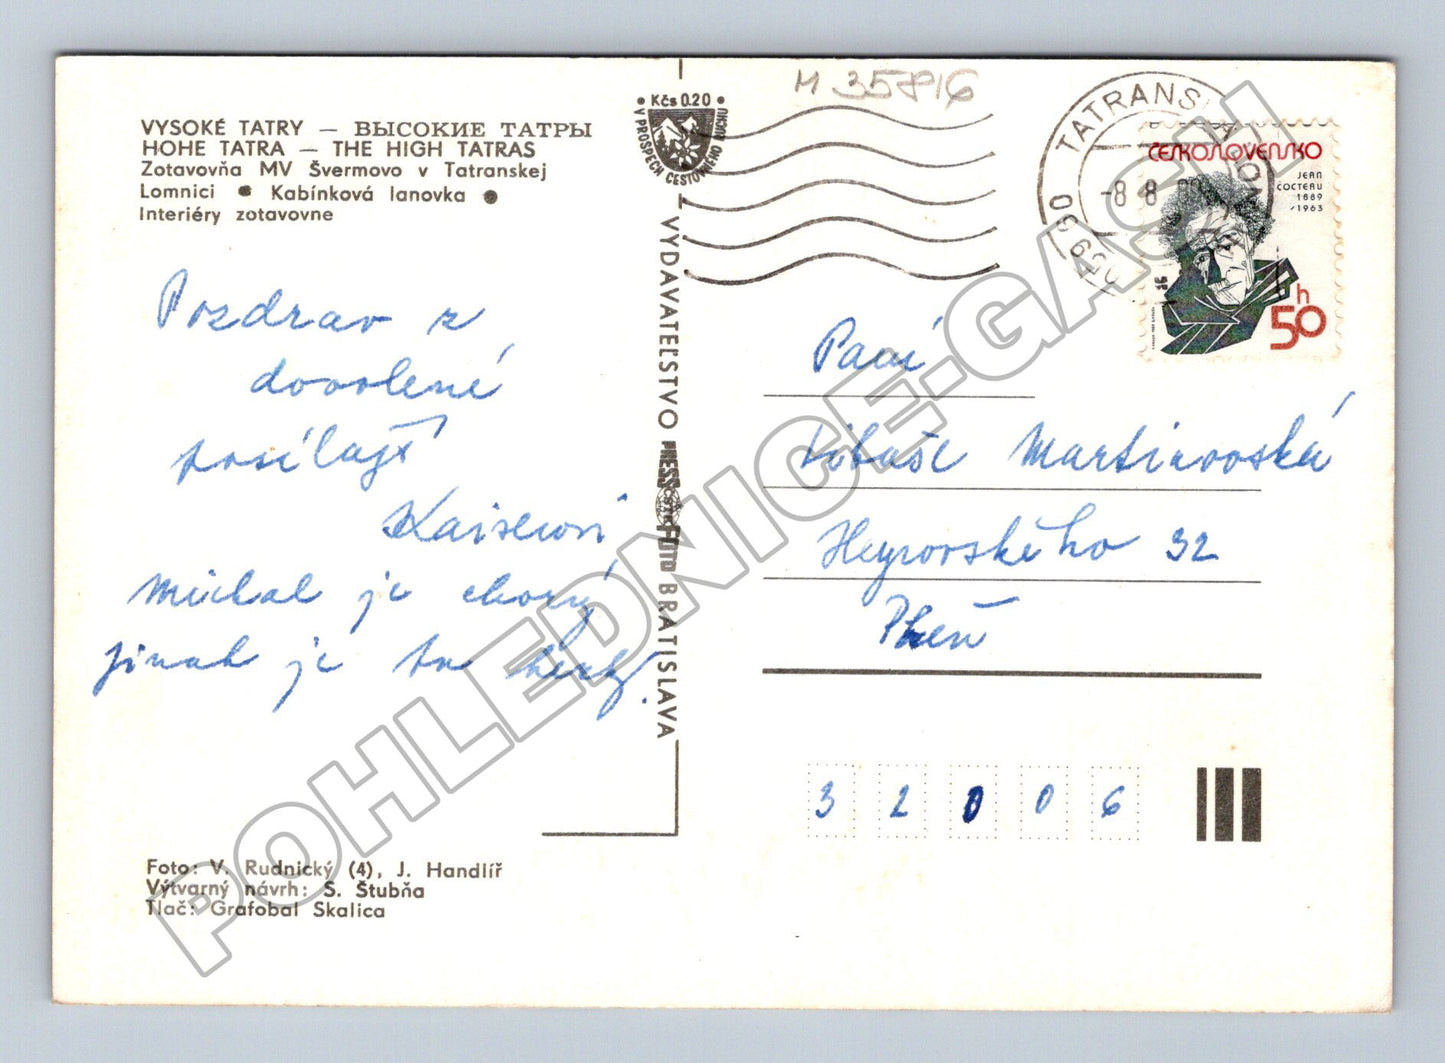 M 35816
VYSOKÉ TATRY — ВЫСОКИЕ ТАТРЫ
HOHE TATRA — THE HIGH TATRAS
Zotavovňa MV Švermovo v Tatranskej
Lomnici ● Kabínková lanovka ●
Interiéry zotavovne
• Kčs 0.20 •
V PROSPECH CESTOVNÉHO RUCHU
VYDAVATEĽSTVO PRESSFOTO BRATISLAVA
ČSTK
TATRANSKÁ LOM
-8 8
059 60
ČESKOSLOVENSKO
JEAN
COCTEAU
1889
/1963
50h
Pozdrav z
dovolené
posílají
Kaiserovi
Michal je chorý
jinak je to hezký.
Paní
Libuše Martinovská
Heyrovského 32
Plzeň
32006
Foto: V. Rudnický (4), J. Handlíř
Výtvarný návrh: S. Štubňa
Tlač: Grafobal Skalica
POHLEDNICE-GASH